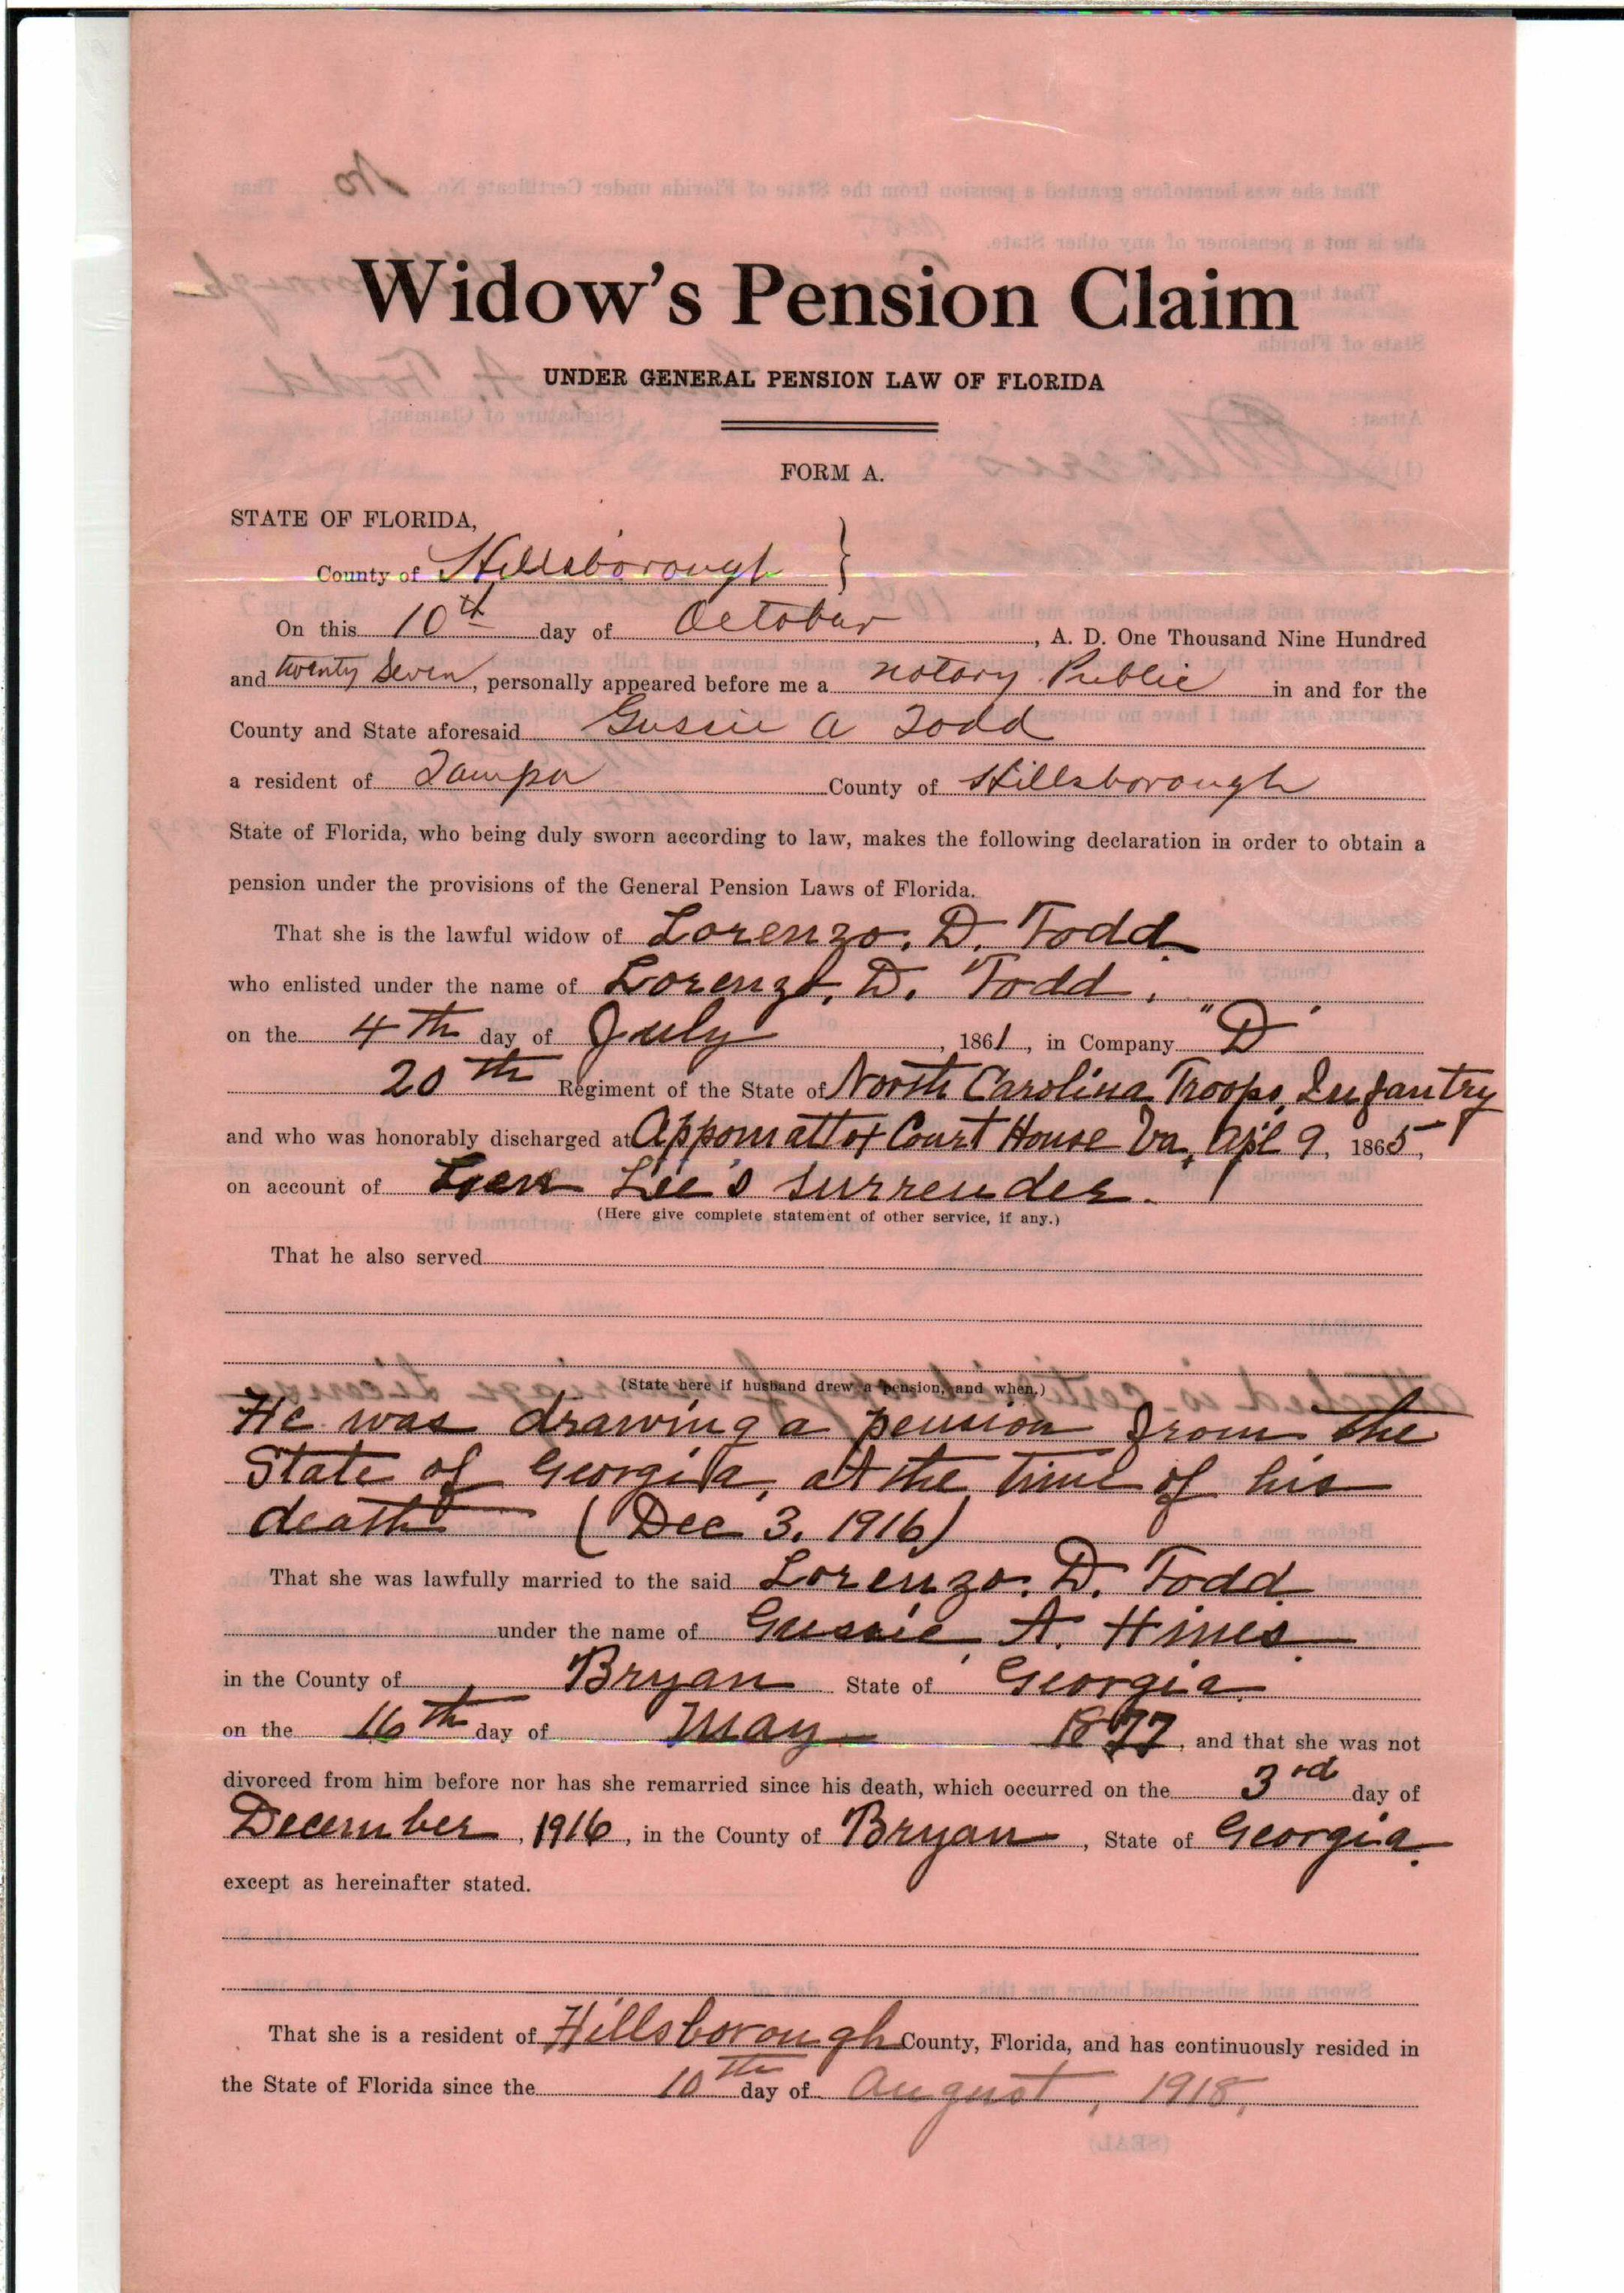 Widow's Pension Claim
UNDER GENERAL PENSION LAW OF FLORIDA
FORM A.
STATE OF FLORIDA,
County of Hillsborough }
On this 10th day of October, A. D. One Thousand Nine Hundred
and twenty Seven, personally appeared before me a notary Public in and for the
County and State aforesaid Gussie A Todd
a resident of Tampa County of Hillsborough
State of Florida, who being duly sworn according to law, makes the following declaration in order to obtain a
pension under the provisions of the General Pension Laws of Florida.
That she is the lawful widow of Lorenzo. D. Todd.
who enlisted under the name of Lorenzo. D. Todd.
on the 4th day of July, 1861, in Company "D"
20th Regiment of the State of North Carolina Troops, Infantry
and who was honorably discharged at Appomattox Court House Va, Apl 9, 1865,
on account of Lee's surrender.
(Here give complete statement of other service, if any.)
That he also served
(State here if husband drew a pension, and when.)
He was drawing a pension from the
State of Georgia, at the time of his
death (Dec 3, 1916)
That she was lawfully married to the said Lorenzo. D. Todd
under the name of Gussie A. Hines.
in the County of Bryan State of Georgia.
on the 16th day of May 1877, and that she was not
divorced from him before nor has she remarried since his death, which occurred on the 3rd day of
December, 1916, in the County of Bryan, State of Georgia.
except as hereinafter stated.
That she is a resident of Hillsborough County, Florida, and has continuously resided in
the State of Florida since the 10th day of August, 1918,